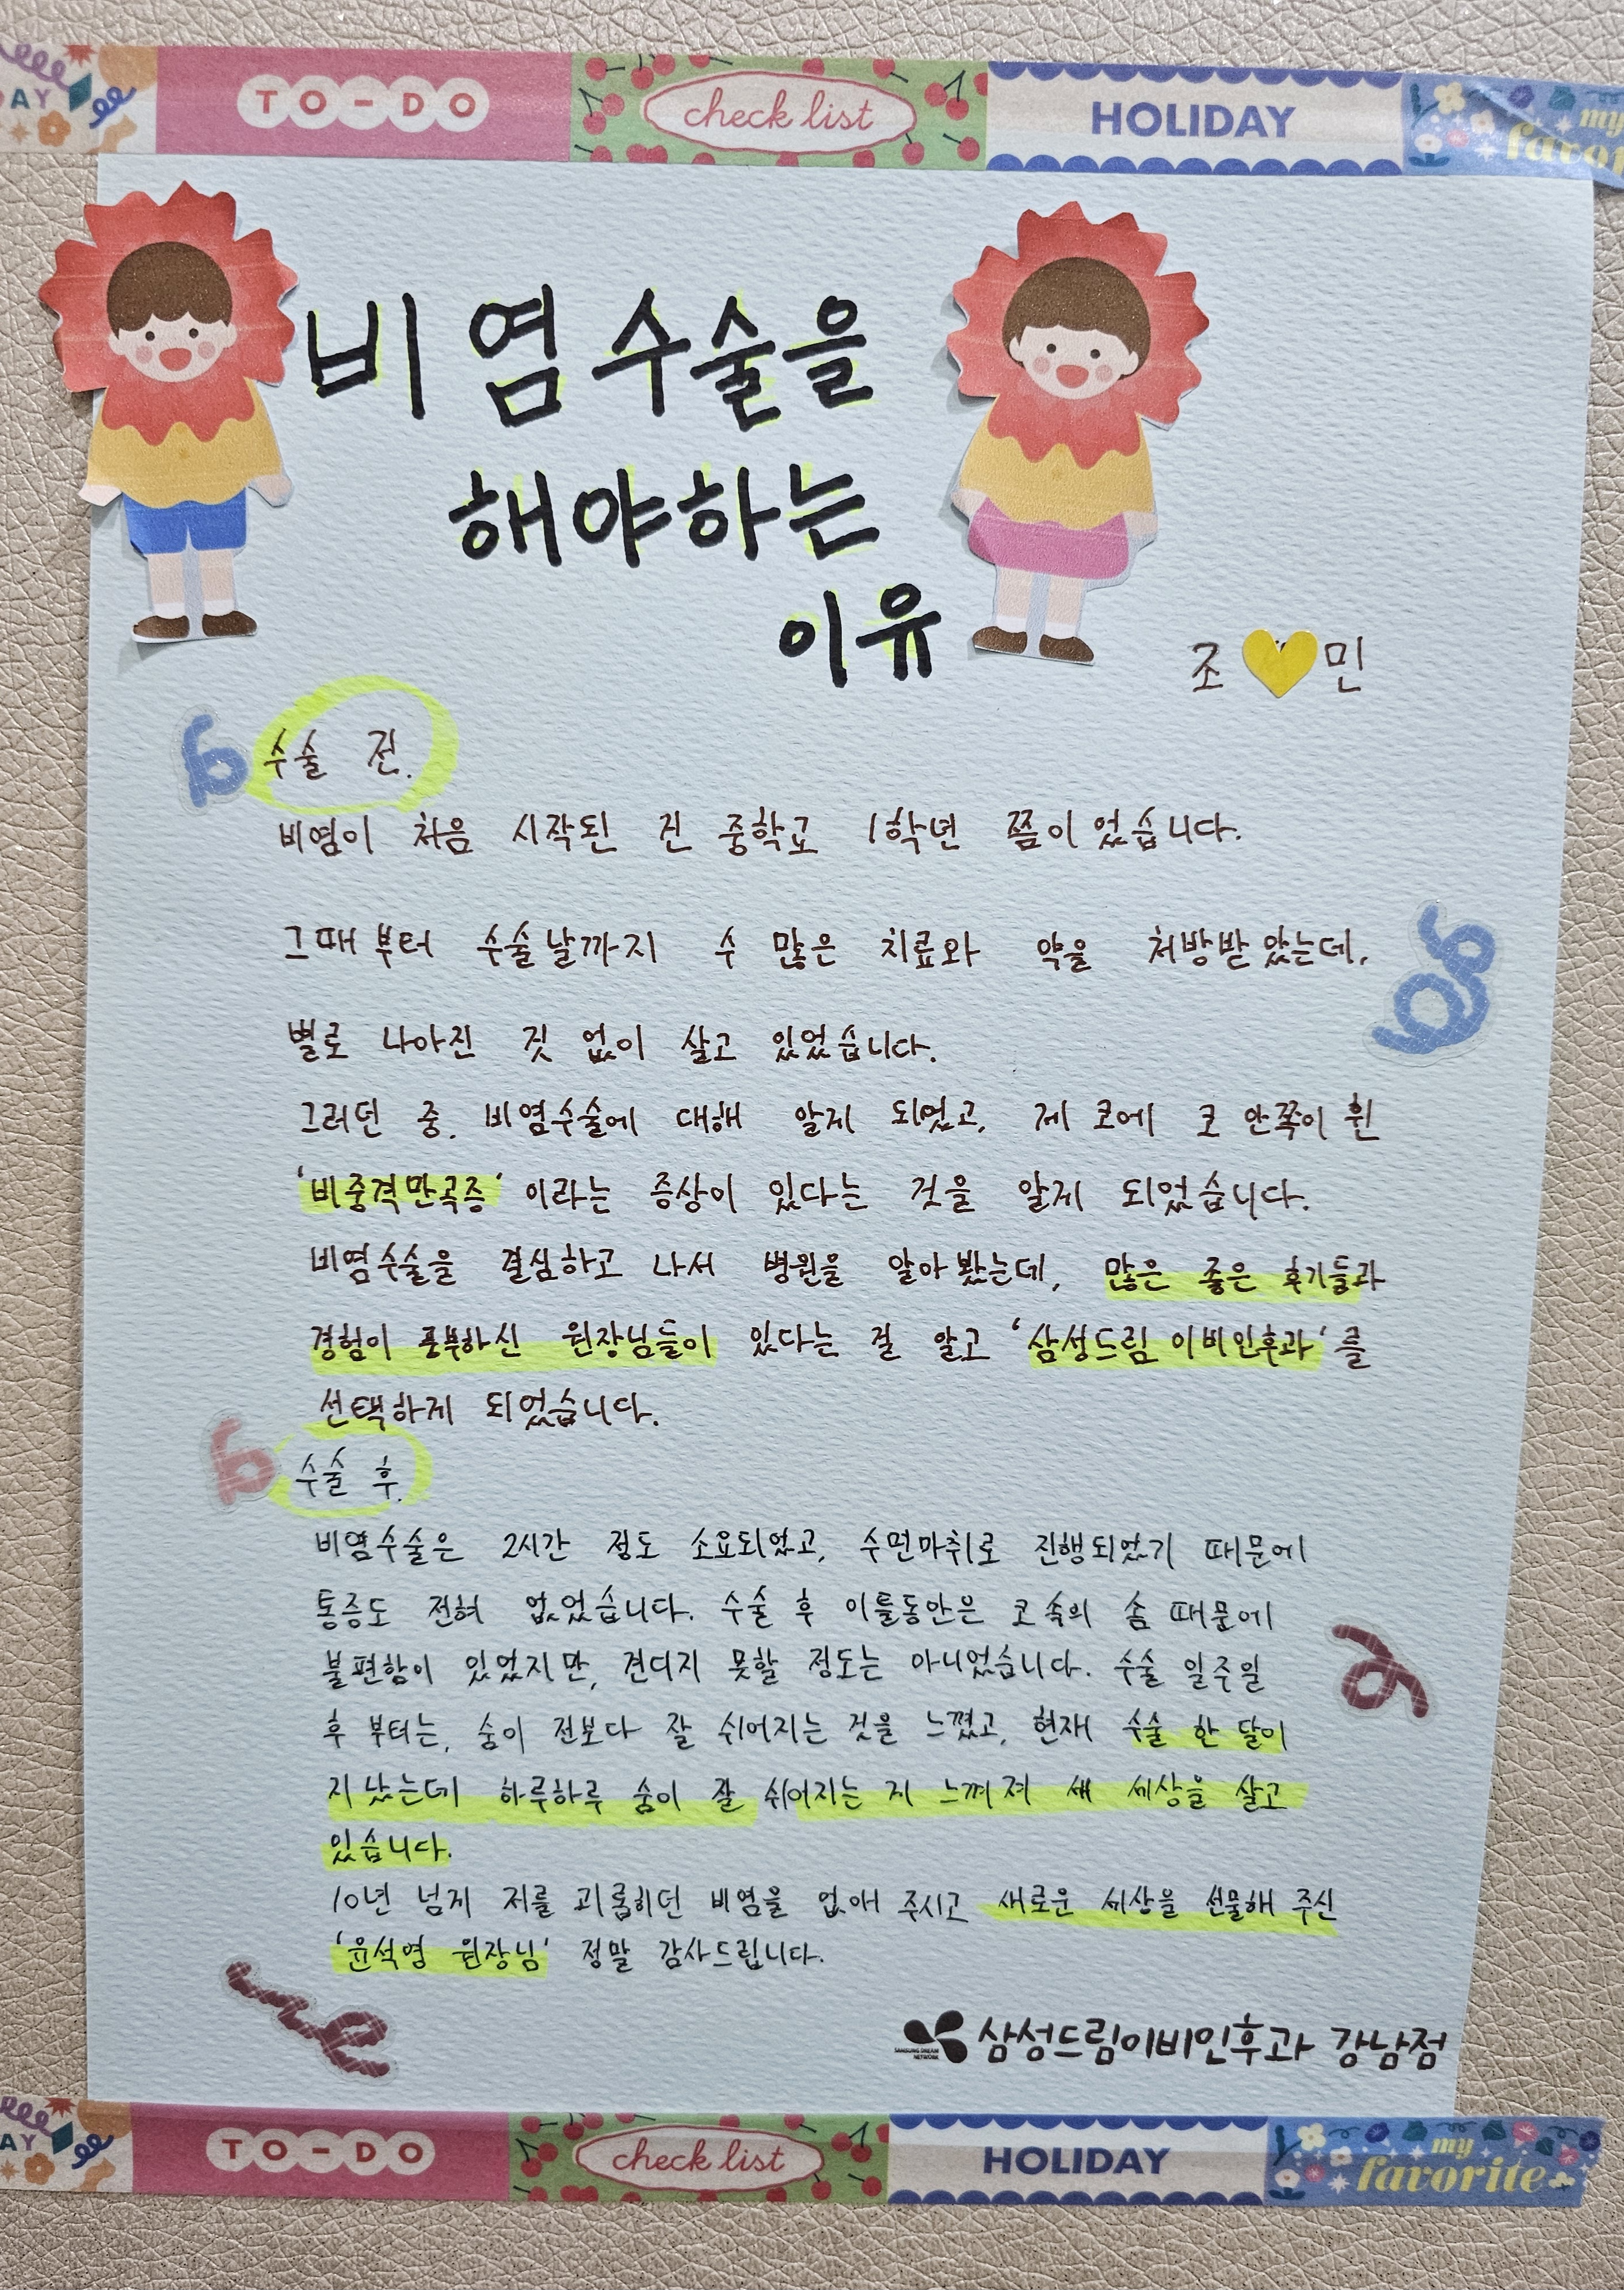 AY TO-DO check list HOLIDAY my favor
비염수술을
해야하는
이유
조 민
수술 전.
비염이 처음 시작된 건 중학교 1학년 쯤이었습니다.
그때부터 수술날까지 수 많은 치료와 약을 처방받았는데,
별로 나아진 것 없이 살고 있었습니다.
그러던 중. 비염수술에 대해 알게 되었고, 제 코에 코 안쪽이 휜
'비중격만곡증' 이라는 증상이 있다는 것을 알게 되었습니다.
비염수술을 결심하고 나서 병원을 알아봤는데, 많은 좋은 후기들과
경험이 풍부하신 원장님들이 있다는 걸 알고 '삼성드림 이비인후과'를
선택하게 되었습니다.
수술 후.
비염수술은 2시간 정도 소요되었고, 수면마취로 진행되었기 때문에
통증도 전혀 없었습니다. 수술 후 이틀동안은 코 속의 솜 때문에
불편함이 있었지만, 견디지 못할 정도는 아니었습니다. 수술 일주일
후 부터는, 숨이 전보다 잘 쉬어지는 것을 느꼈고, 현재 수술 한 달이
지났는데 하루하루 숨이 잘 쉬어지는 게 느껴져 새 세상을 살고
있습니다.
10년 넘게 저를 괴롭히던 비염을 없애 주시고 새로운 세상을 선물해 주신
'윤석영 원장님' 정말 감사드립니다.
SAMSUNG DREAM NETWORK 삼성드림이비인후과 강남점
AY TO-DO check list HOLIDAY my favorite